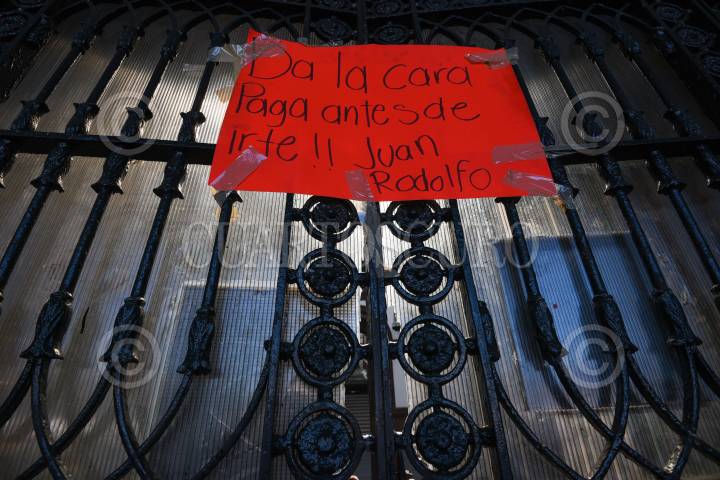 Da la cara
Paga antes de
irte!! Juan
Rodolfo
CUARTOSCURO